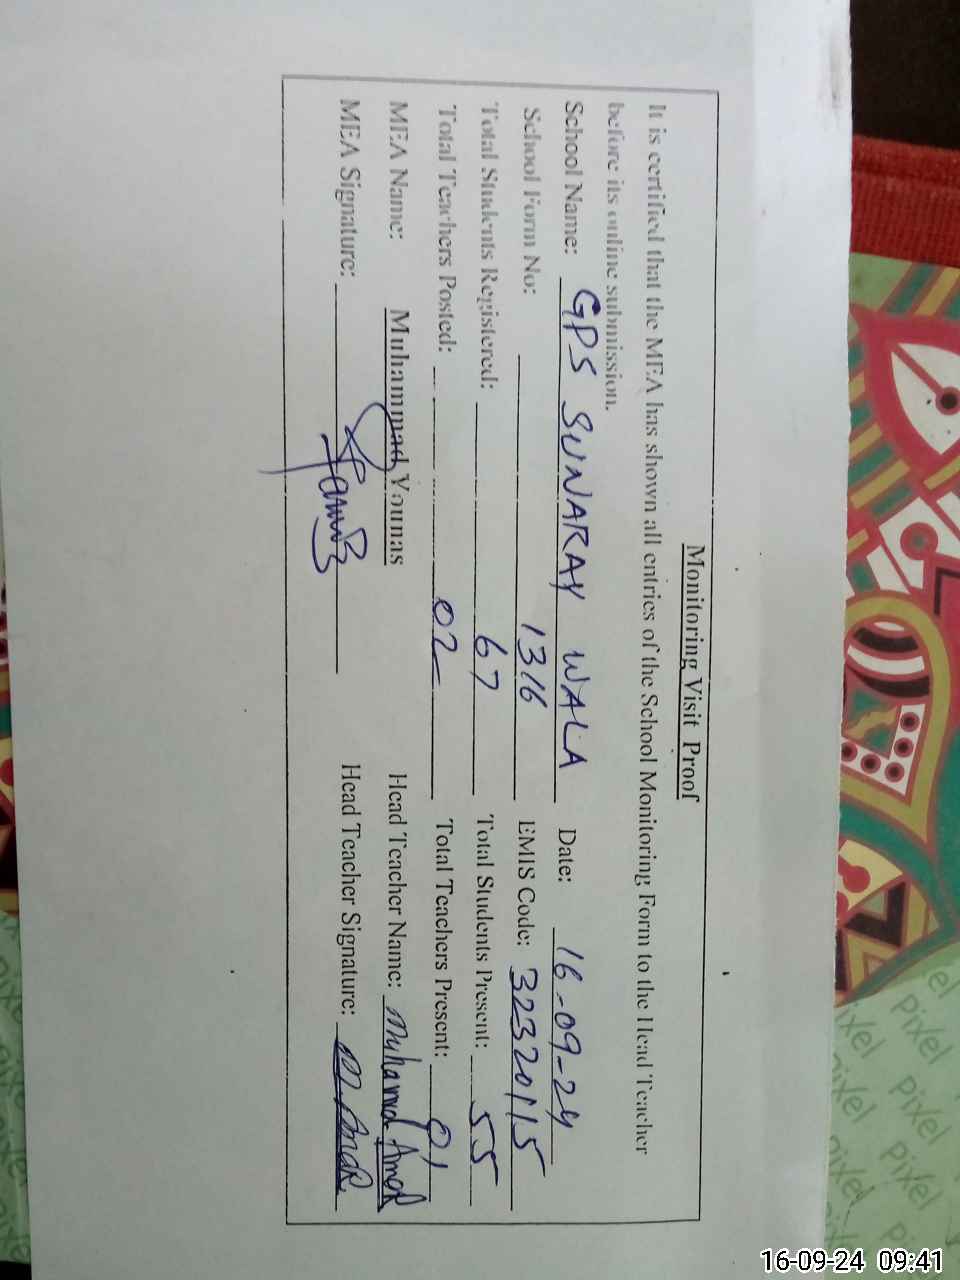 Monitoring Visit Proof
It is certified that the MEA has shown all entries of the School Monitoring Form to the Head Teacher
before its online submission.
School Name: GPS SUNARAY WALA Date: 16-09-24
School Form No: 1316 EMIS Code: 32320115
Total Students Registered: 67 Total Students Present: 55
Total Teachers Posted: 02 Total Teachers Present: 01
MEA Name: Muhammad Younas Head Teacher Name: Muhamd
MEA Signature: Head Teacher Signature:
pixel
pixel
pixel
pixel
pixel
16-09-24 09:41